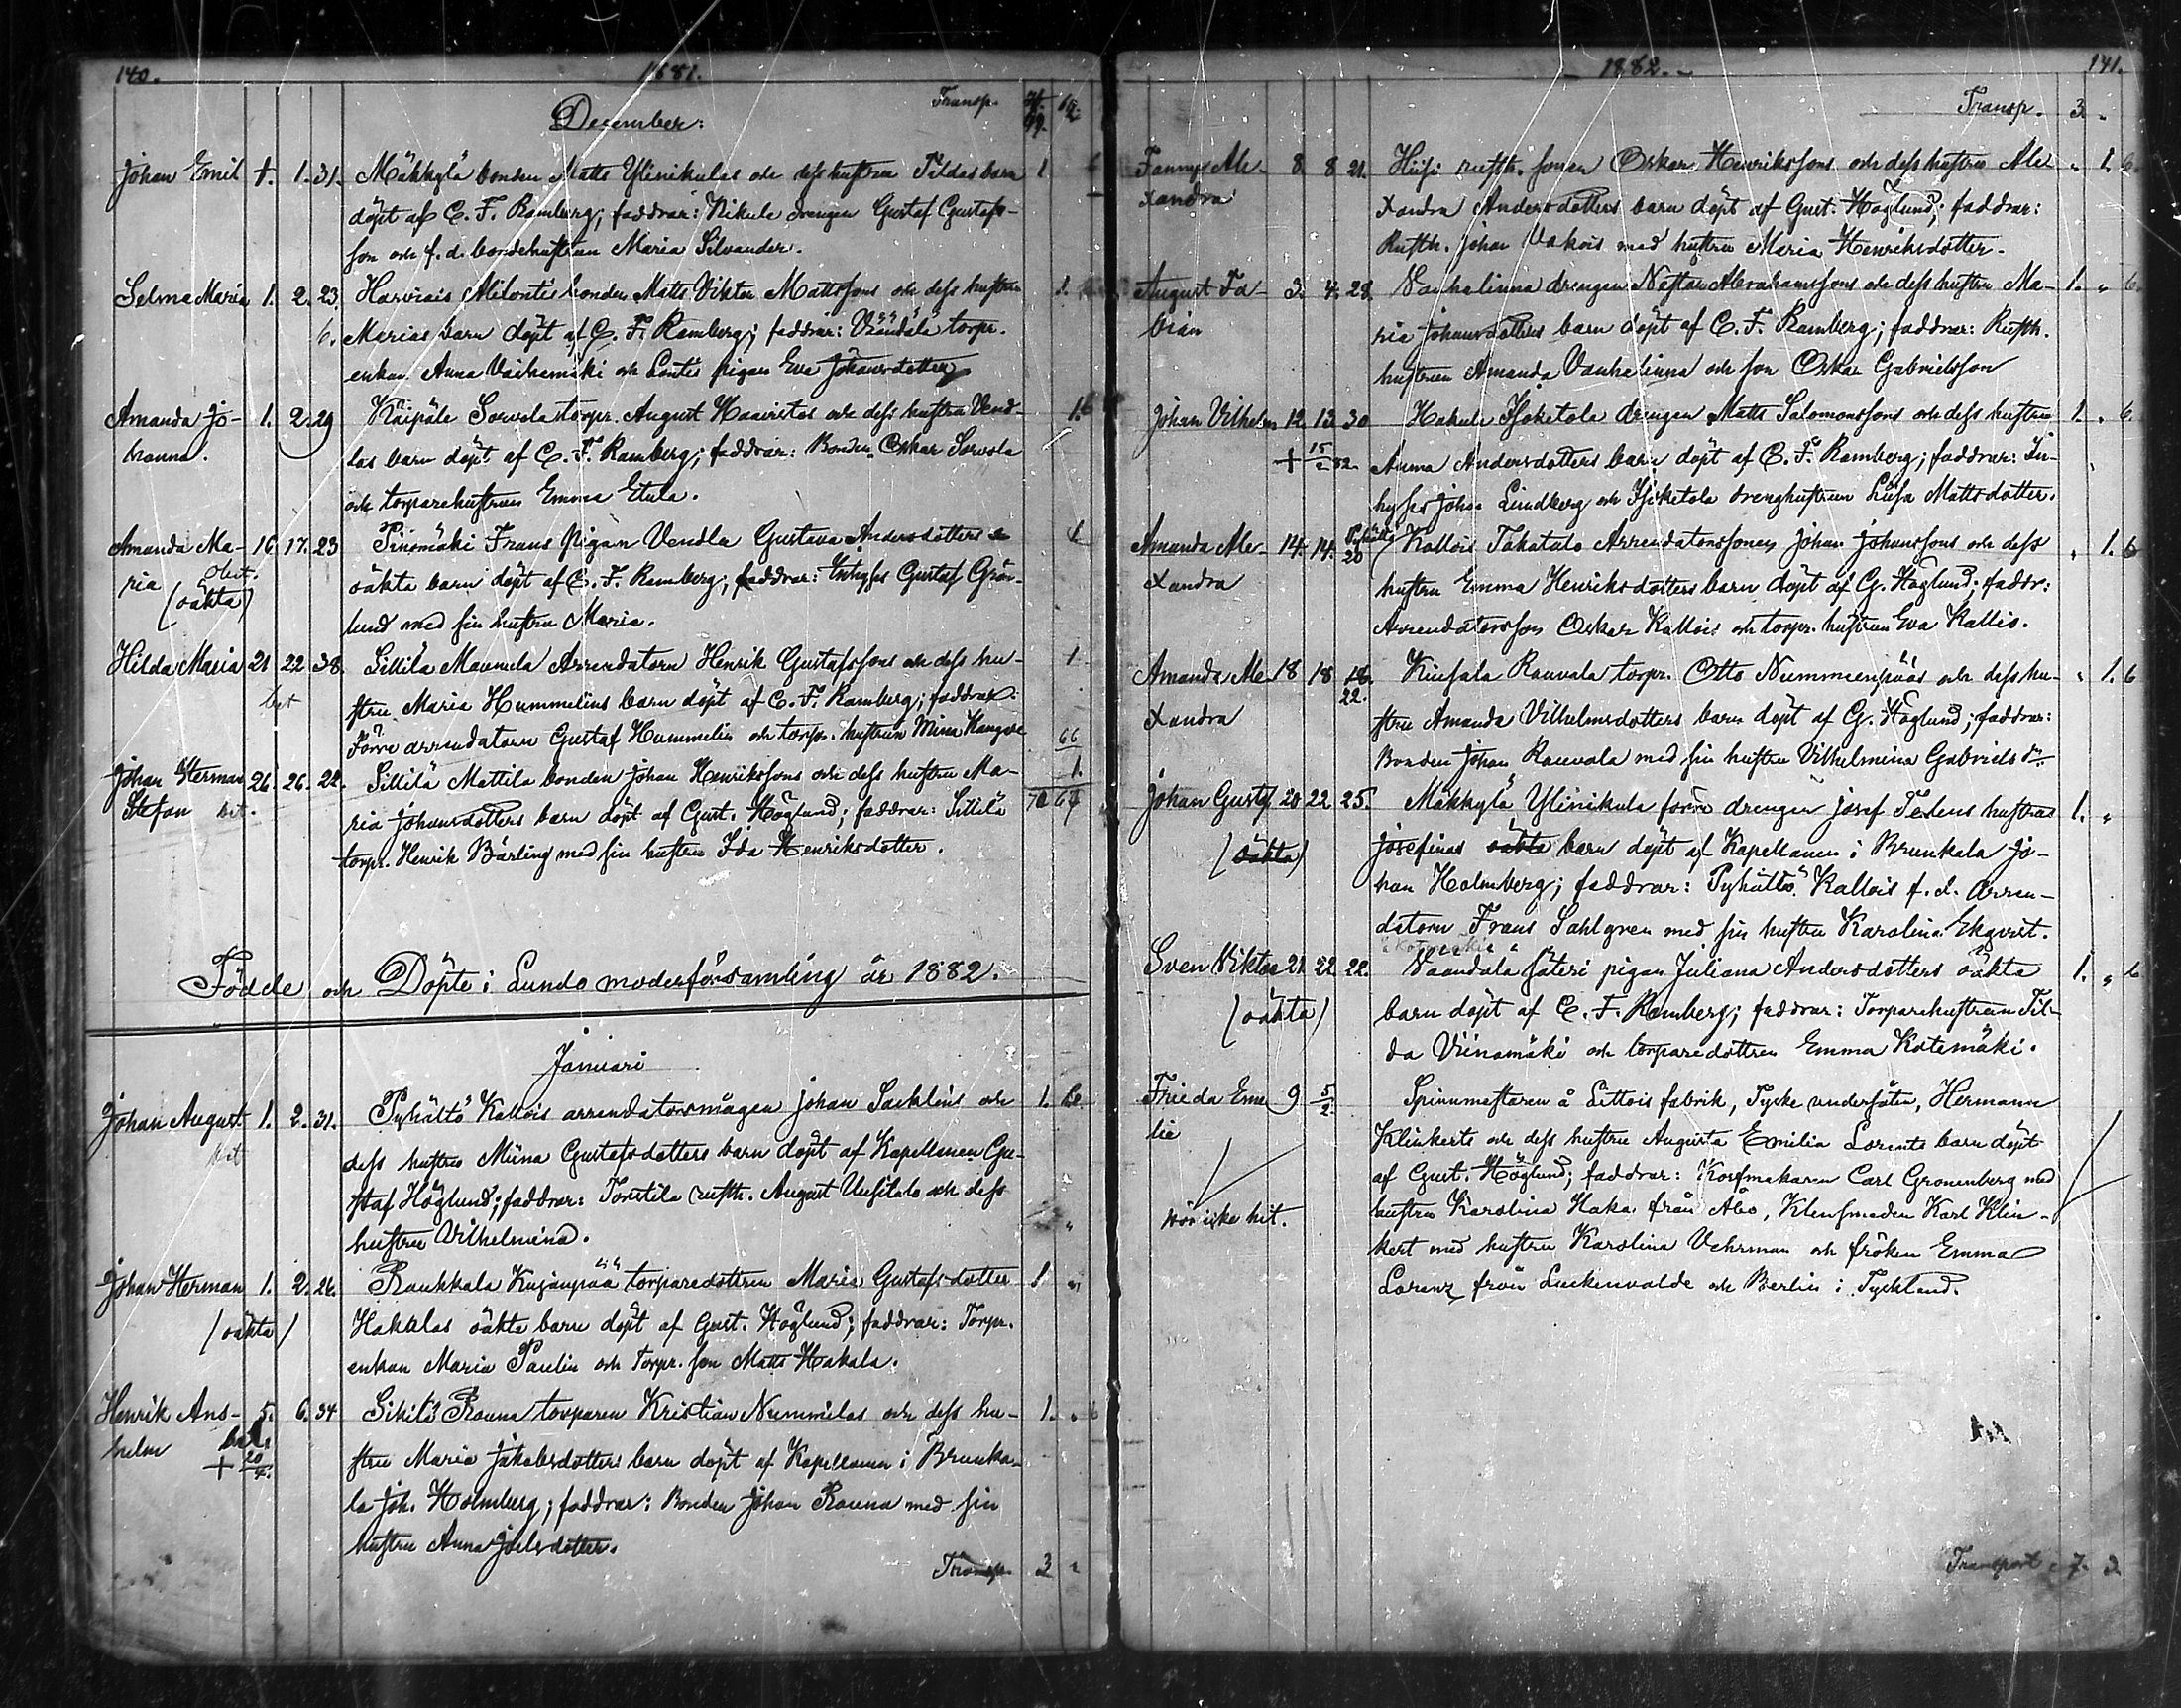 140. 1881.
December: Transp.
Johan Emil 1. 1. 31. Mäkkylä bonden Matts Ylinikulas och dess hustru Tildas barn 1
döpt af C. F. Ramberg; faddrar: Nikula drengen Gustaf Gustafs-
son och f. d. bondehustrun Maria Silvander.
Selma Maria 1. 2. 23. bonden Matts Viktor Mattssons och dess hustru 1.
6. Marias barn döpt af C. F. Ramberg; faddrar: Väändälä torpr.
enkan Anna och Lontis pigan Eva Johansdotter
Amanda Jo- 1. 2. 29 Käipälä Sorvola torpr. August Haavistos och dess hustru Vend- 1.
hanna. las barn döpt af C. F. Ramberg; faddrar: Bonden Oskar Sorvola
och torparehustrun Emma Etula.
Amanda Ma- 16 17. 23 Pinomäki Frans pigan Vendla Gustava Andersdotters
ria (oäkta) oäkta barn döpt af C. F. Ramberg; faddrar: Inhyses Gustaf Grön-
lund med sin hustru Maria.
Hilda Maria 21 22 38. Sillilä Maunula Arrendatorn Henrik Gustafssons och dess hu- 1
stru Maria Hummelins barn döpt af C. F. Ramberg; faddrar:
Förre arrendatorn Gustaf Hummelin och torpr. hustrun Mina 66
Johan Herman 26. 26. 22. Sillilä Mattila bonden Johan Henrikssons och dess hustru Ma- 1.
Stefan ria Johansdotters barn döpt af Gust. Höglund; faddrar: Sillilä 70 67
torpr. Henrik Bärling med sin hustru Ida Henriksdotter.
Födde och Döpte i Lundo moderförsamling år 1882.
Januari
Johan August 1. 2. 31. Pyhältö Kallois arrendatorsmågen Johan Sacklins och 1.
dess hustrus Miina Gustafsdotters barn döpt af Kapellanen Gu-
staf Höglund; faddrar: Torstila rusth. August Uusitalo och dess
hustru Vilhelmina.
Johan Herman 1. 2. 26. Raukkala Kujanpää torparedottren Maria Gustafsdotter 1 "
(oäkta) Hakalas oäkta barn döpt af Gust. Höglund; faddrar: Torpr.
enkan Maria Paulin och torpr. son Matts Hakala.
Henrik Ans- 5. 6. 34 Rauna torparen Kristian Nummilas och dess hu- 1. " 6
helm + 20/4. stru Maria Jakobsdotters barn döpt af Kapellanen i Brunka-
la Joh. Holmberg; faddrar: Bonden Johan Rauna med sin
hustru Anna Joelsdotter.
Transp. 3 "
1882. 141.
Transp. 3 "
Fanny Ale- 8. 8 21. Hiisi rusth. sonen Oskar Henrikssons och dess hustru Ale- " 1. 6.
xandra xandra Andersdotters barn döpt af Gust. Höglund; faddrar:
Rusth. Johan Vakois med hustru Maria Henriksdotter.
August Fa- 3. 4. 28. Vanhalinna drengen Nestor Abrahamssons och dess hustru Ma- 1. " 6.
bian ria Johansdotters barn döpt af C. F. Ramberg; faddrar: Rusth.
hustrun Amanda Vanhalinna och son Oskar Gabrielsson
Johan Vilhelm 12. 13. 30 Hakula Isoketola drengen Matts Salomonssons och dess hustru 1. " 6.
+ 15/2 82. Anna Andersdotters barn döpt af C. F. Ramberg; faddrar: In-
hyses Johan Lindberg och Isoketola drenghustrun Lusa Mattsdotter.
Amanda Ale- 14. 14. 20 Kallois Takatalo Arrendatorssonen Johan Johanssons och dess " 1. 6
xandra hustru Emma Henriksdotters barn döpt af G. Höglund; faddr:
Arrendatorsson Oskar Kallois och torpr. hustrun Eva Kallis.
Amanda Ale- 18 18 18. Rauvala torpr. Otto Nummenpääs och dess hu- " 1. 6
xandra 22. stru Amanda Vilhelmsdotters barn döpt af G. Höglund; faddrar:
Bonden Johan Rauvala med sin hustru Vilhelmina Gabriels dr.
Johan Gustaf 20 22. 25. Mäkkylä Ylinikula förre drengen Josef Tedens hustrus 1. "
(oäkta) Josefinas oäkta barn döpt af Kapellanen i Brunkala Jo-
han Holmberg; faddrar: Pyhältö Kallois f. d. Arren-
datorn Frans Sahlgren med sin hustru Karolina Ekqvist.
Sven Viktor 21. 22. 22. Väändälä säteri pigan Juliana Andersdotters oäkta 1. " 6
(oäkta) barn döpt af C. F. Ramberg; faddrar: Torparehustrun Til-
da Viinamäki och torparedottren Emma Kotimäki.
Frieda Emi- 9 5/2. Spinnmästaren å Littois fabrik, Tyske undersåten, Hermann
lie Klinkerts och dess hustru Augusta Emilia Lorents barn döpt
af Gust. Höglund; faddrar: Korfmakaren Carl Gronenberg med
hör icke hit. hustru Karolina Haka från Åbo, Klensmeden Karl Klin-
kert med hustru Karolina Vehrman och fröken Emma
Lorenz från Luckenwalde och Berlin i Tyskland.
Transport 7. 3